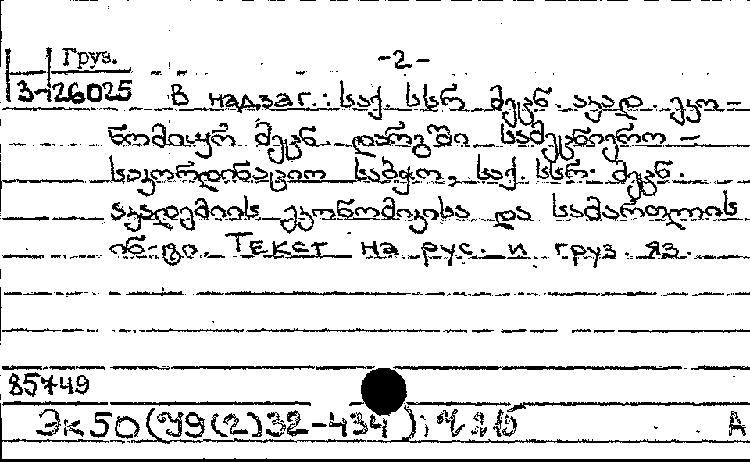 Груз.
3-26025
-2-
В надзаг.: საქ. სსრ მეცნ. აკად. ეკო-
ნომიკურ მეცნ. დარგში სამეცნიერო -
საკოორდინაციო საბჭო, საქ. სსრ. მეცნ.
აკადემიის ეკონომიკისა და სამართლის
ინ-ტი. Текст на рус. и груз. яз.
85749
Эк50(У9(2)32-434);
А